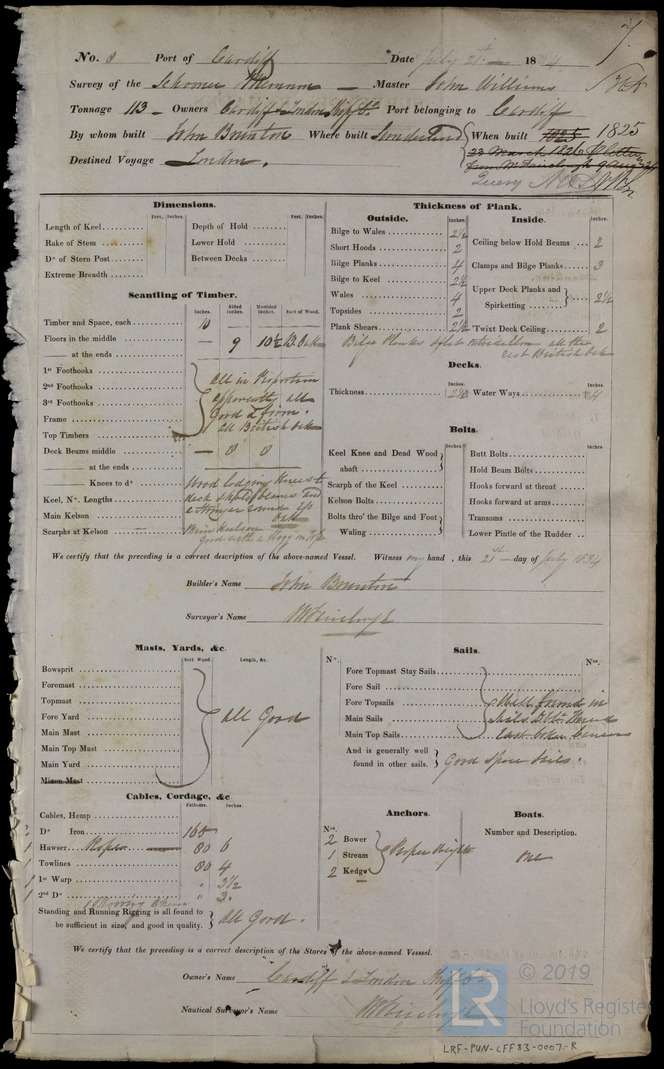 7.
No. 8 Port of Cardiff Date July 21st 1834
Survey of the Schooner Master John Williams
Tonnage 113 Owners Cardiff & London Shipg Co Port belonging to Cardiff
By whom built John Brunton Where built Sunderland When built 1825 1825
23 March 1826
Destined Voyage London.
Query
Dimensions.
Feet. Inches. Feet. Inches.
Length of Keel Depth of Hold
Rake of Stem Lower Hold
Do of Stern Post Between Decks
Extreme Breadth
Thickness of Plank.
Outside. Inches. Inside. Inches.
Bilge to Wales 2½
Short Hoods 2 Ceiling below Hold Beams 2
Bilge Planks 4 Clamps and Bilge Planks 3
Bilge to Keel 2½
Wales 4 Upper Deck Planks and Spirketting 2½
Topsides 2
Plank Shears 2½ 'Twixt Deck Ceiling 2
Bilge Planks all the
rest British oak
Scantling of Timber.
Inches. Sided Inches. Moulded Inches. Sort of Wood.
Timber and Space, each 10
Floors in the middle — 9 10½ Bt. Oak
—— at the ends
1st Foothooks
2nd Foothooks
3rd Foothooks
Frame
Top Timbers
all in Proportion
apparently, all
Good & firm.
all British oak
Deck Beams middle — 8 8
—— at the ends
—— Knees to do
Keel, No. Lengths
Main Kelson
Scarphs at Kelson
Wood lodging Knees to
deck beams and
a Stringer round
Oak
Decks.
Inches. Inches.
Thickness 2½ Water Ways 4
Bolts.
Inches. Inches.
Keel Knee and Dead Wood abaft Butt Bolts
Hold Beam Bolts
Scarph of the Keel Hooks forward at throat
Kelson Bolts Hooks forward at arms
Bolts thro' the Bilge and Foot Waling Transoms
Lower Pintle of the Rudder
We certify that the preceding is a correct description of the above-named Vessel. Witness my hand, this 21st day of July 1834
Builder's Name John Brunton
Surveyor's Name
Masts, Yards, &c.
Sort Wood. Length, &c.
Bowsprit
Foremast
Topmast
Fore Yard
Main Mast
Main Top Mast
Main Yard
Mizen Mast
all Good
Sails.
No. Nos.
Fore Topmast Stay Sails
Fore Sail
Fore Topsails
Main Sails
Main Top Sails
Well found in
Sails
And is generally well found in other sails. Good Spare Sails.
Cables, Cordage, &c
Fathoms. Inches.
Cables, Hemp
2 Do Iron 168
1 Hawser 80 6
Towlines 80 4
1 1st Warp " 3½
1 2nd Do " 3.
Standing and Running Rigging is all found to be sufficient in size, and good in quality. all Good.
Anchors.
Nos.
2 Bower
1 Stream
2 Kedge
Proper Weights
Boats.
Number and Description.
one
We certify that the preceding is a correct description of the Stores of the above-named Vesssel.
Owner's Name Cardiff & London Shipg Co
Nautical Surveyor's Name
LR © 2019
Lloyd's Register
Foundation
LRF-PUN-CFF83-0007-R